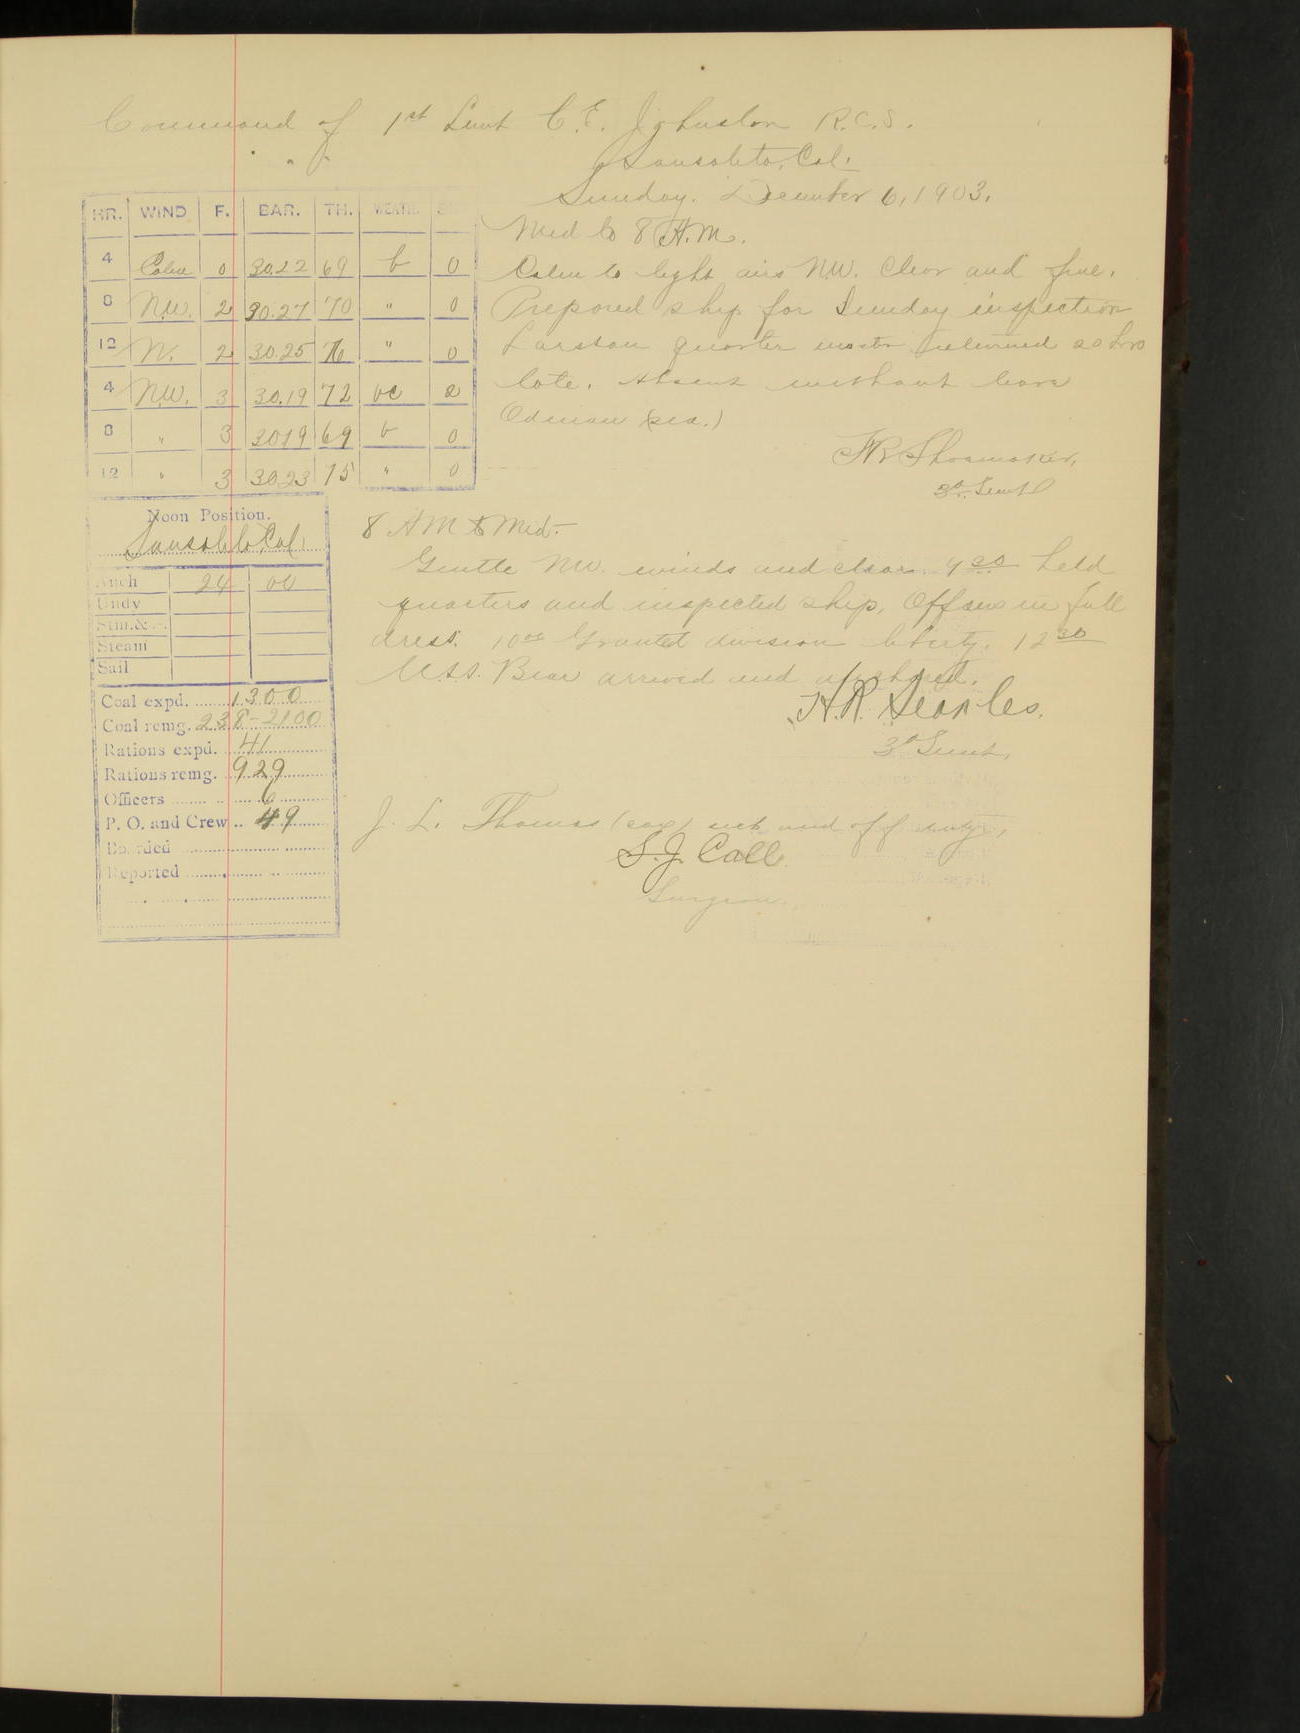 Command of 1st Lieut C.E. Johnston R.C.S.
Sausalito, Cal.
Sunday. December 6, 1903.
HR. WIND F. BAR. TH. WEATH.
4 Calm 0 30.22 69 b 0
8 N.W. 2 30.27 70 " 0
12 N. 2 30.25 76 " 0
4 N.W. 3 30.19 72 bc 0
8 " 3 3019 69 b 0
12 " 3 3023 75 " 0
Mid to 8 A.M.
Calm to light airs N.W. Clear and fine.
Prepared ship for Sunday inspection
quarter master returned 20 hrs
late. Absent without leave
(sea.)
F.R. Shoemaker,
3d. Lieut
Noon Position.
Sausalito Cal.
Anch 24 00
Undy
Stm.& S.
Steam
Sail
Coal expd. 1300
Coal remg. 238-2100
Rations expd. 41
Rations remg. 929
Officers 6
P. O. and Crew 49
Boarded
Reported
8 AM to Mid-
Gentle NW. winds and clear. 9 30 held
quarters and inspected ship, Officers in full
dress. 10 00 Granted division liberty. 12 30
U.S.S. Bear arrived and anchored.
H.R. Searles.
3d Lieut,
J. L. Thomas (cox) sick and off duty,
S.J. Call
Surgeon.